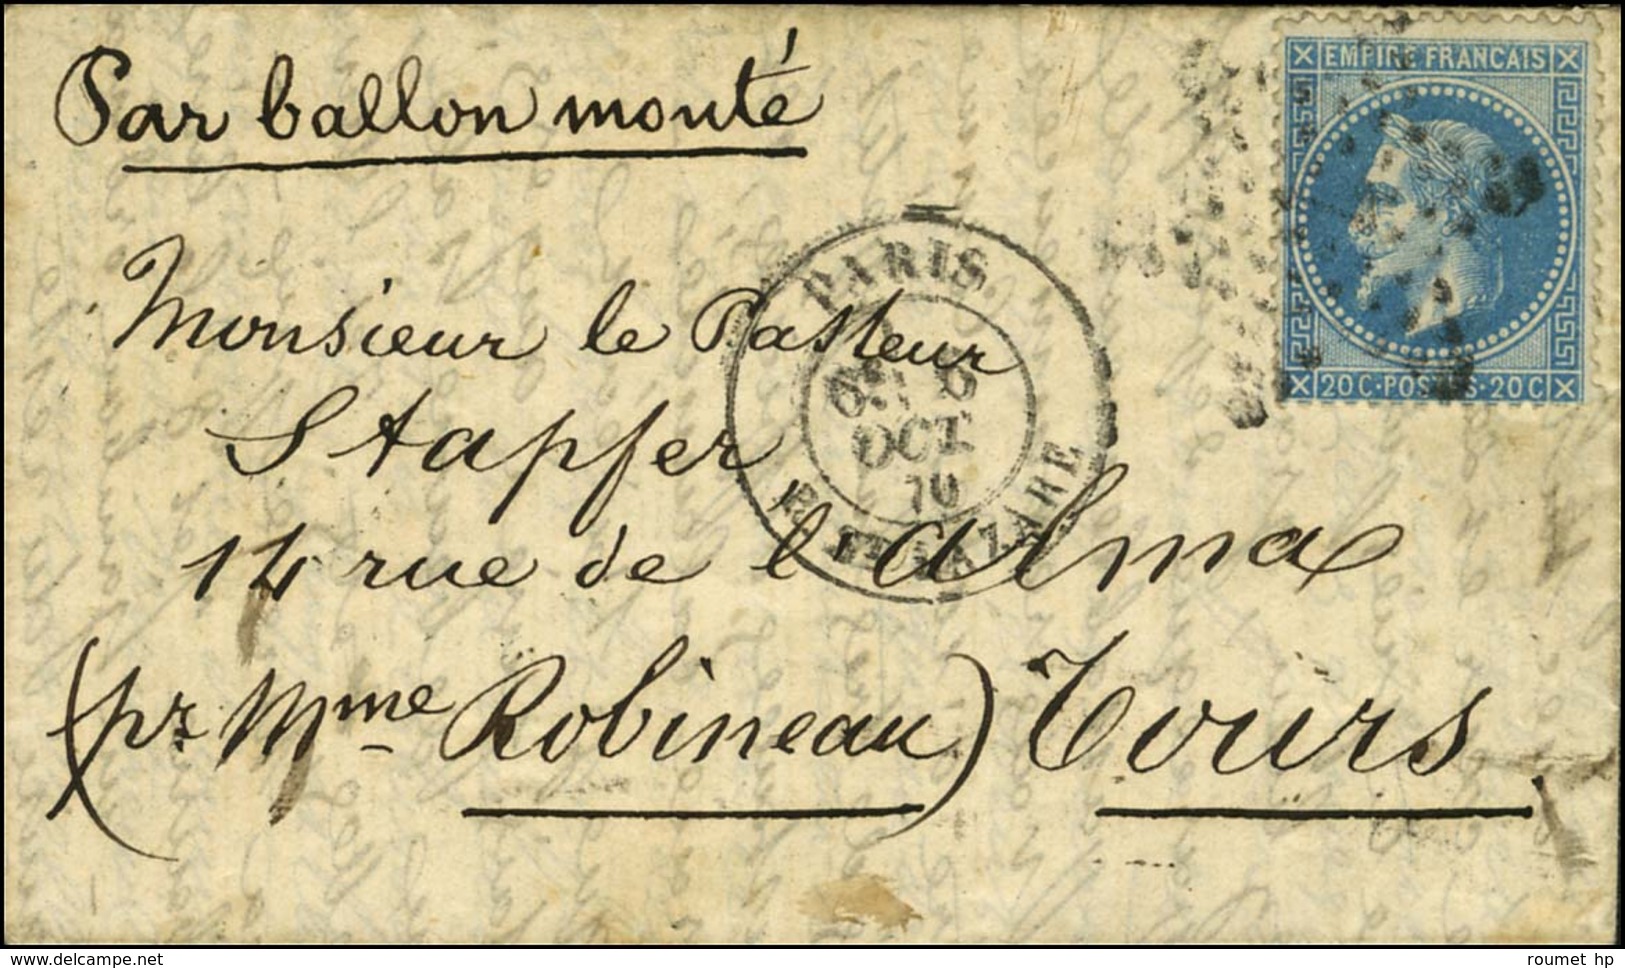 Par ballon monté
EMPIRE FRANCAIS
20 C · POSTES · 20 C
PARIS
6
OCT
70
R. ST LAZARE
Monsieur le Pasteur
Stapfer
14 rue de l'alma
(pr Mme Robineau) Tours
www.delcampe.net
roumet hp